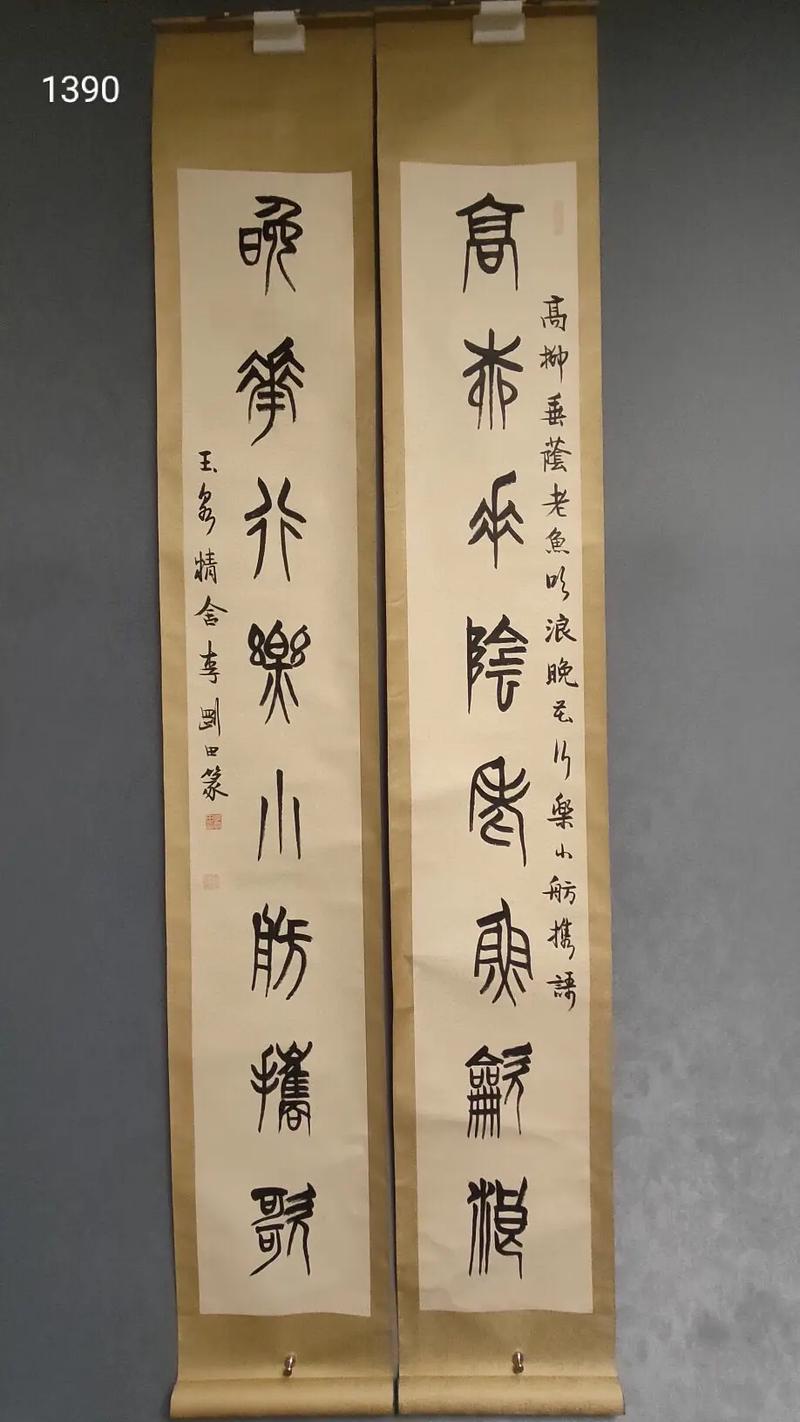 1390
高柳垂蔭老魚吹浪晚花行樂小舫携謌
高桺垂陰老魚龡浪
晚華行樂小舫攜歌
玉泉精舍李剛田篆